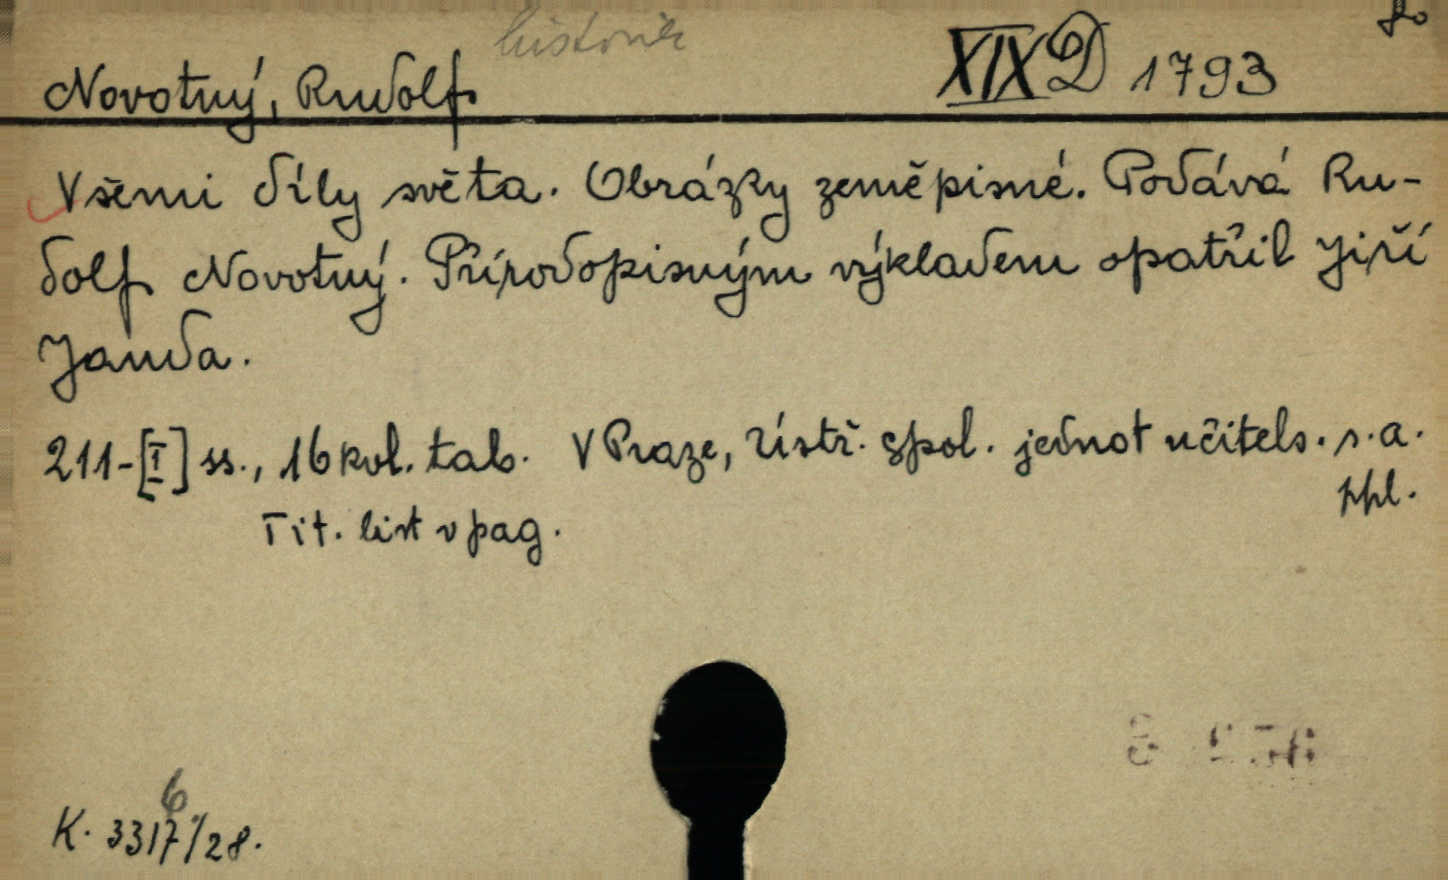 historik
Novotný, Rudolf
XIX D 1793
Všemi díly světa. Obrázky zeměpisné. Podává Ru-
dolf Novotný. Přírodopisným výkladem opatřil Jiří
Janda.
211-[I] ss., 16 kol. tab. V Praze, Ústř. spol. jednot učitels. s.a.
ppl.
Tit. list v pag.
6
K. 3317/28.